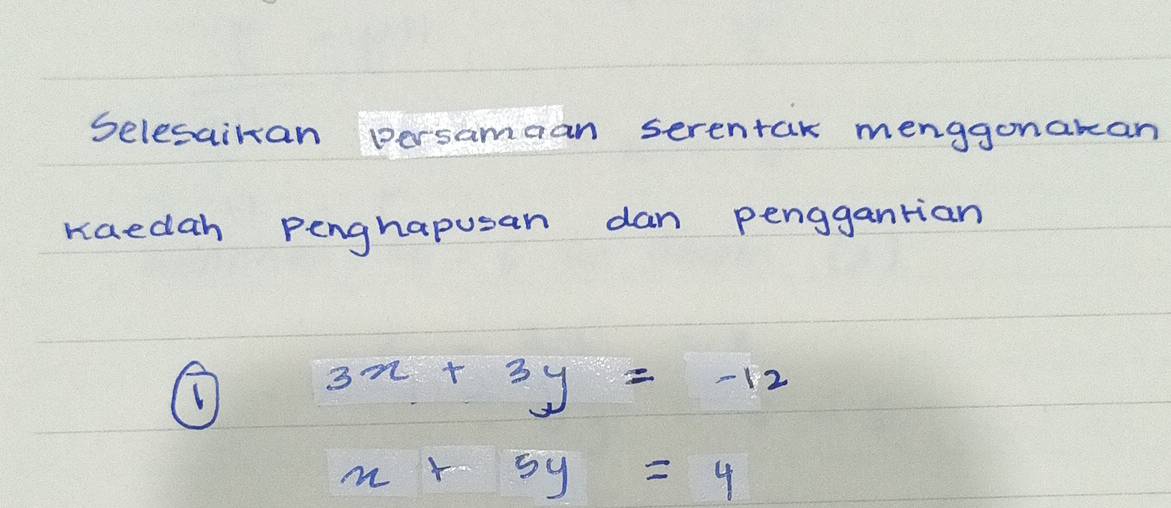 Selesaikan persamaan serentak menggunakan
kaedah penghapusan dan penggantian
① 3x + 3y = -12
x + 5y = 4